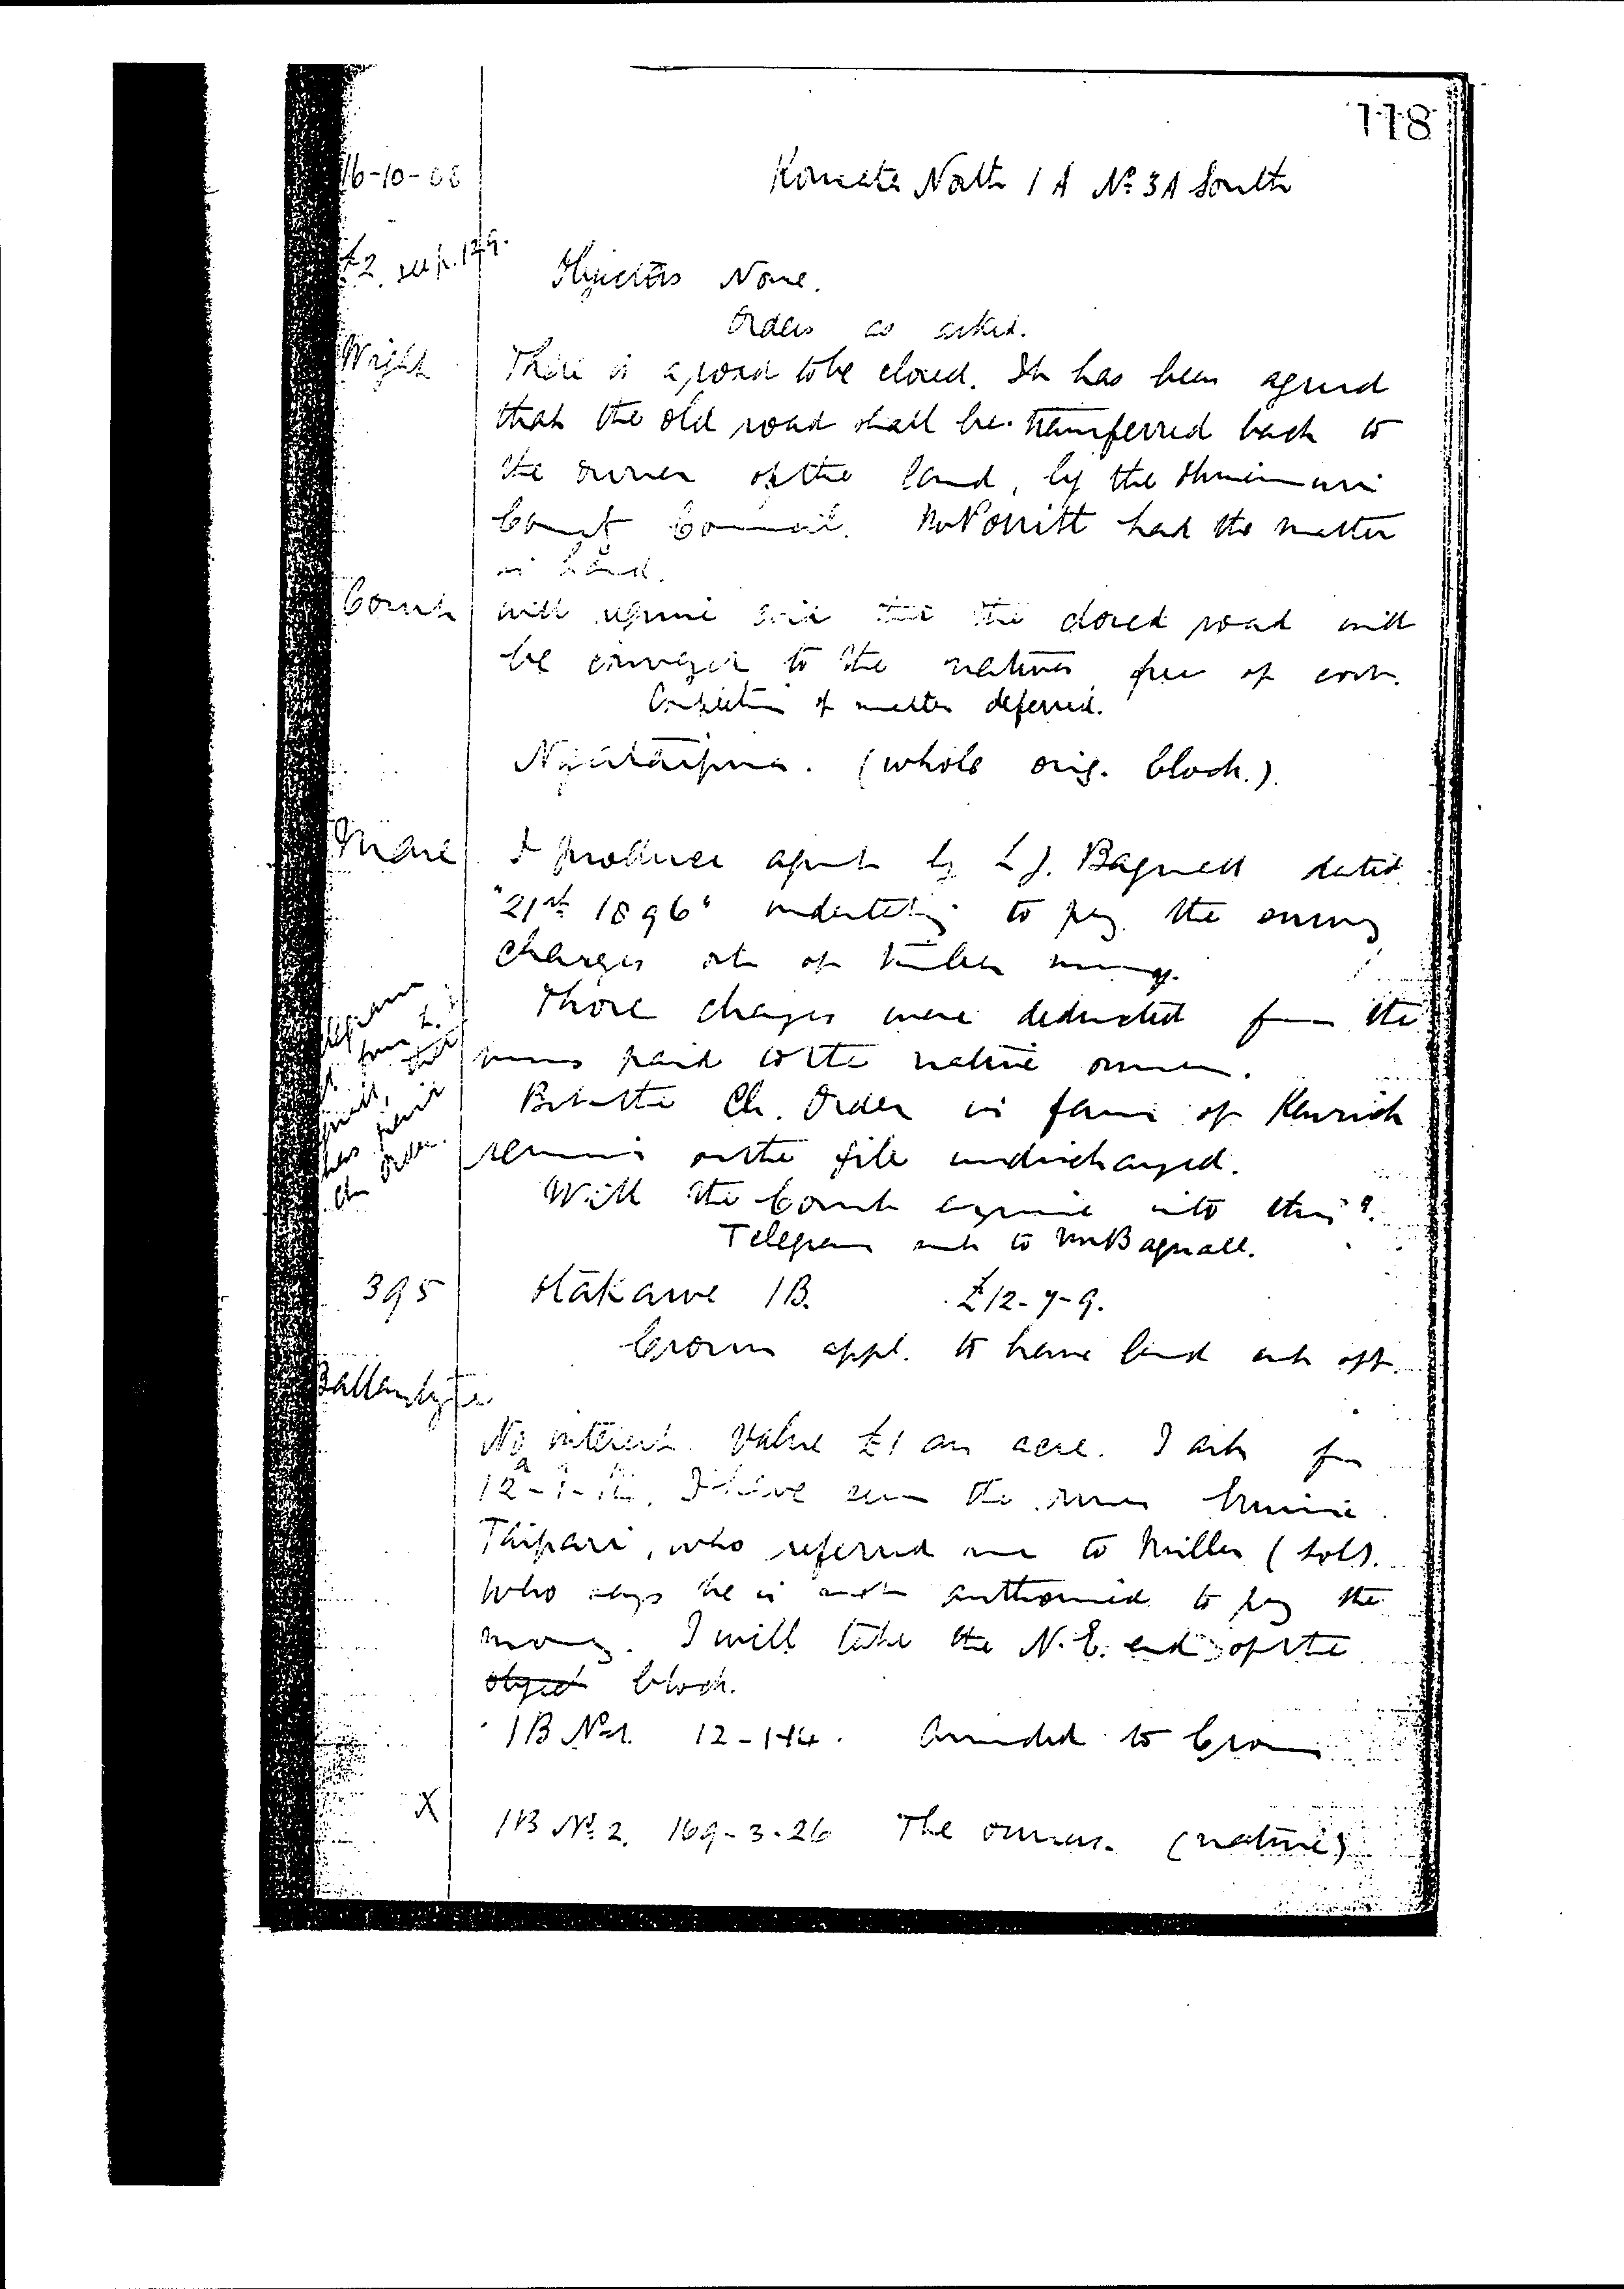 118
16-10-08
Komata North 1A No 3A South
£2. see p. 129.
Objectors None.
Orders as asked.
Wright
There is a road to be closed. It has been agreed
that the old road shall be transferred back to
the owner of the land, by the Ohinemuri
County Council. Mr Porritt had the matter
in hand.
Court
will require evid. that the closed road will
be conveyed to the natives free of cost.
Completion of matter deferred.
(whole orig. block.)
I produce agmt by L J. Bagnall dated
"21st 1896" undertaking to pay the survey
charges out of timber money.
Those charges were deducted from the
sums paid to the native owners.
But the Ch. Order in favor of Kenrick
remains on the file undischarged.
Will the Court enquire into this?
Telegram sent to Mr Bagnall.
Telegram
from L. J.
that
has paid
Ch Order.
395
Otakawe 1B. £12-7-9.
Crown appl. to have land cut off.
Ballantyne
No interest. Value £1 an acre. I ask for
12-1-14. I have seen the owner
Taipari, who referred me to Miller (Solr.
who says he is not authorised to pay the
money. I will take the N.E. end of the
object block.
1B No 1. 12-1-14. Awarded to Crown
X
1B No 2. 169-3-26 The owners. (native)